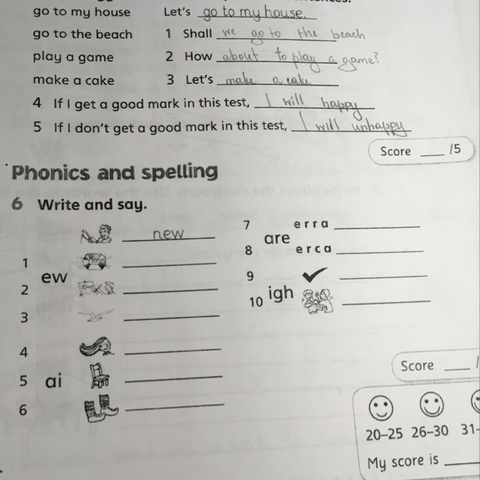 go to my house Let's go to my house.
go to the beach 1 Shall we go to the beach
play a game 2 How about to play a game?
make a cake 3 Let's make a cake
4 If I get a good mark in this test, I will happy
5 If I don't get a good mark in this test, I will unhappy
Score ___ /5
Phonics and spelling
6 Write and say.
new
1
ew
2
3
4
5 ai
6
7 erra
are
8 erca
9
igh
10
Score ___ /
20–25 26–30 31–
My score is ___